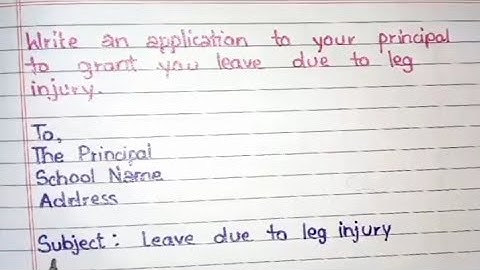 Write an application to your principal
to grant you leave due to leg
injury.
To,
The Principal
School Name
Address
Subject: Leave due to leg injury